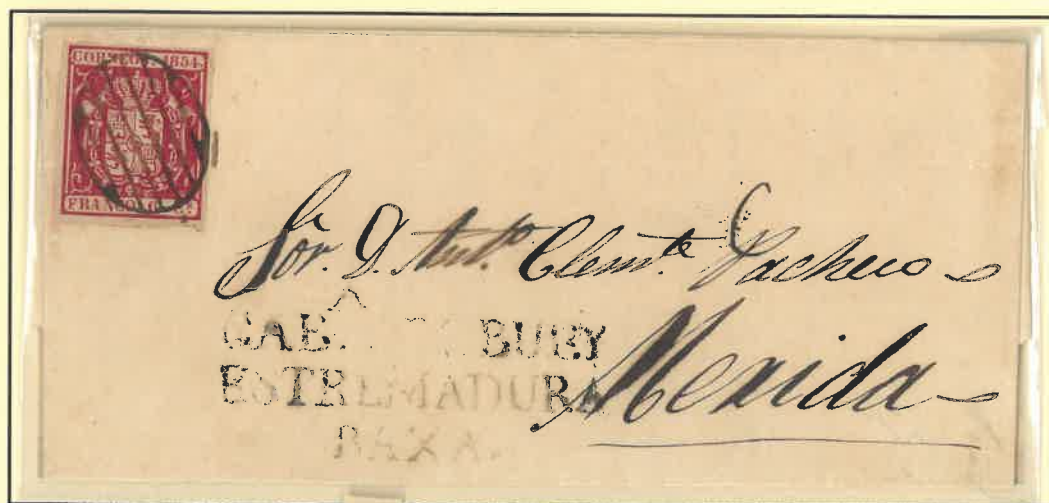 CORREOS. 1854.
FRANCO. 6 Cs
Sor. D. Anto. Clemte Pacheco
CABEZA BUEY
ESTREMADURA
BAXA.
Merida